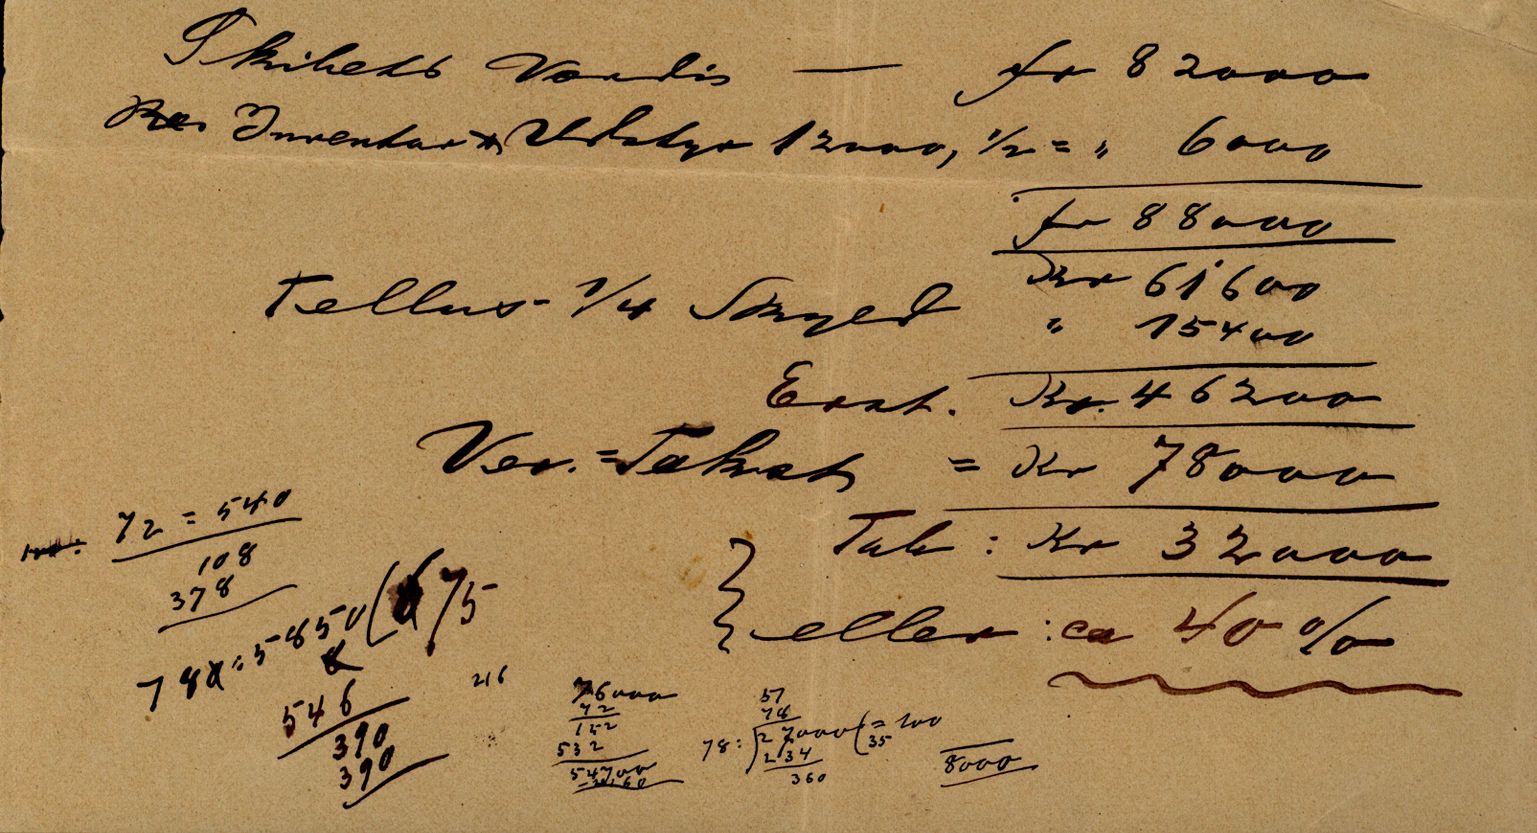 Skibets Værdi — fr 82000
Inventar & Udstyr 12000, 1/2 = " 6000
fr 88000
Kr 61600
Tellus 1/4 Skyld " 15400
Erst. Kr. 46200
Ver. = Takst = Kr 78000
Tab : Kr 32000
eller : ca 40 %
72 = 540
108
378
78 = 5850 ( 75
546
390
390
216
76000
72
152
532
54700
57
78
78 : 27000 ( = 100
35
234
360
8000